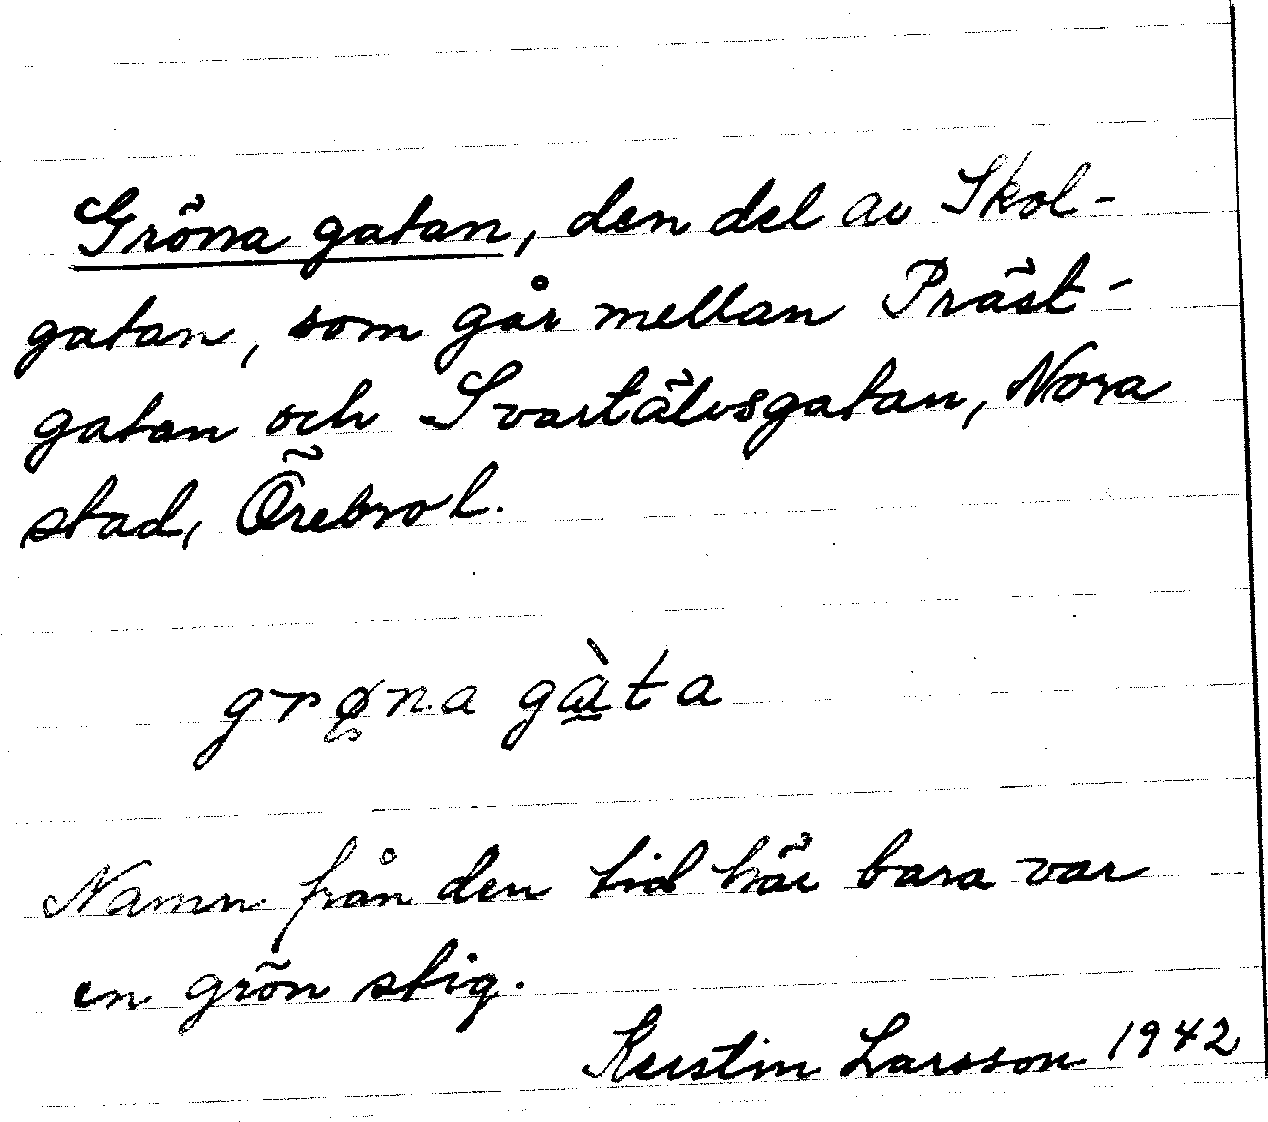 Gröna gatan, den del av Skol-
gatan, som går mellan Präst-
gatan och Svartälvsgatan, Nora
stad, Örebro l.
grøna gàta
Namn från den tid här bara var
en grön stig.
Kerstin Larsson 1942